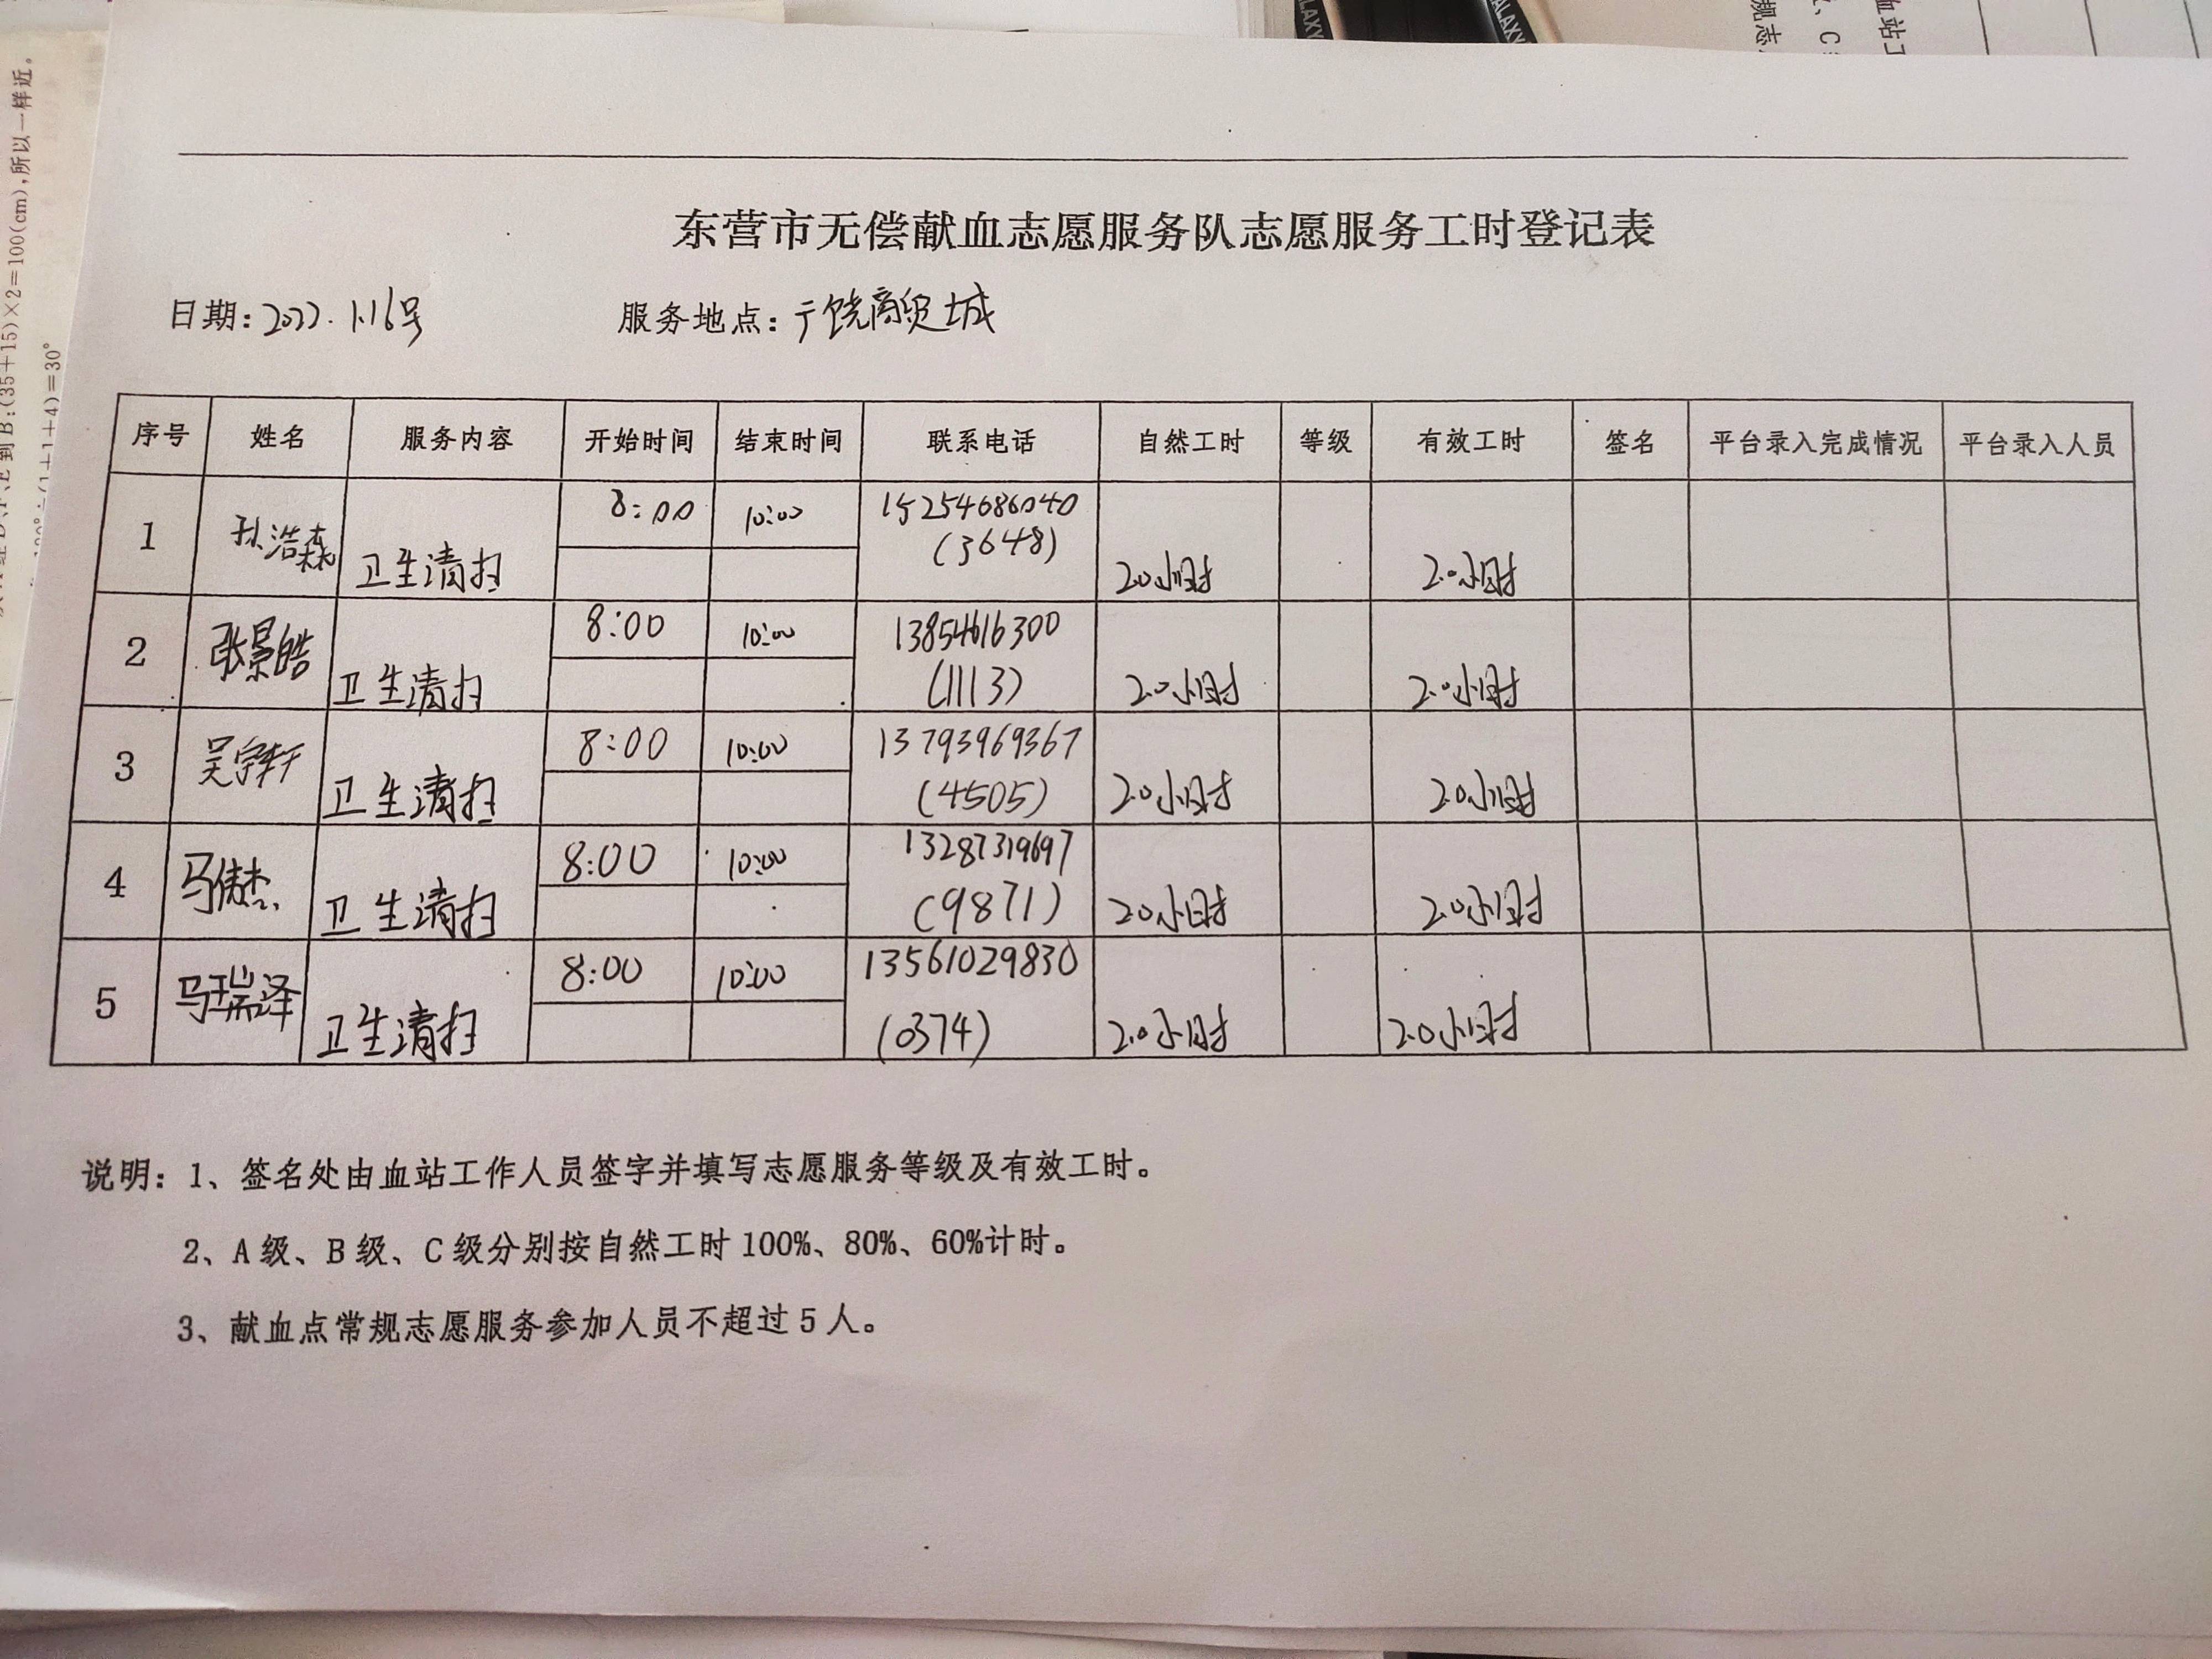 东营市无偿献血志愿服务队志愿服务工时登记表
日期：2022.1.16号 服务地点：广饶商贸城
序号 姓名 服务内容 开始时间 结束时间 联系电话 自然工时 等级 有效工时 签名 平台录入完成情况 平台录入人员
1 孙浩森 卫生清扫 8:00 10:00 15254686040 (3648) 2.0小时 2.0小时
2 张景皓 卫生清扫 8:00 10:00 13854616300 (1113) 2.0小时 2.0小时
3 吴宇轩 卫生清扫 8:00 10:00 13793969367 (4505) 2.0小时 2.0小时
4 马傲杰 卫生清扫 8:00 10:00 13287319697 (9871) 2.0小时 2.0小时
5 马瑞泽 卫生清扫 8:00 10:00 13561029830 (0374) 2.0小时 2.0小时
说明：1、签名处由血站工作人员签字并填写志愿服务等级及有效工时。
2、A级、B级、C级分别按自然工时100%、80%、60%计时。
3、献血点常规志愿服务参加人员不超过5人。
到B:(35+15)×2=100(cm),所以一样近。
÷(1+1+4)=30°
ALAXY
ALAXY
规志
、C
血站工